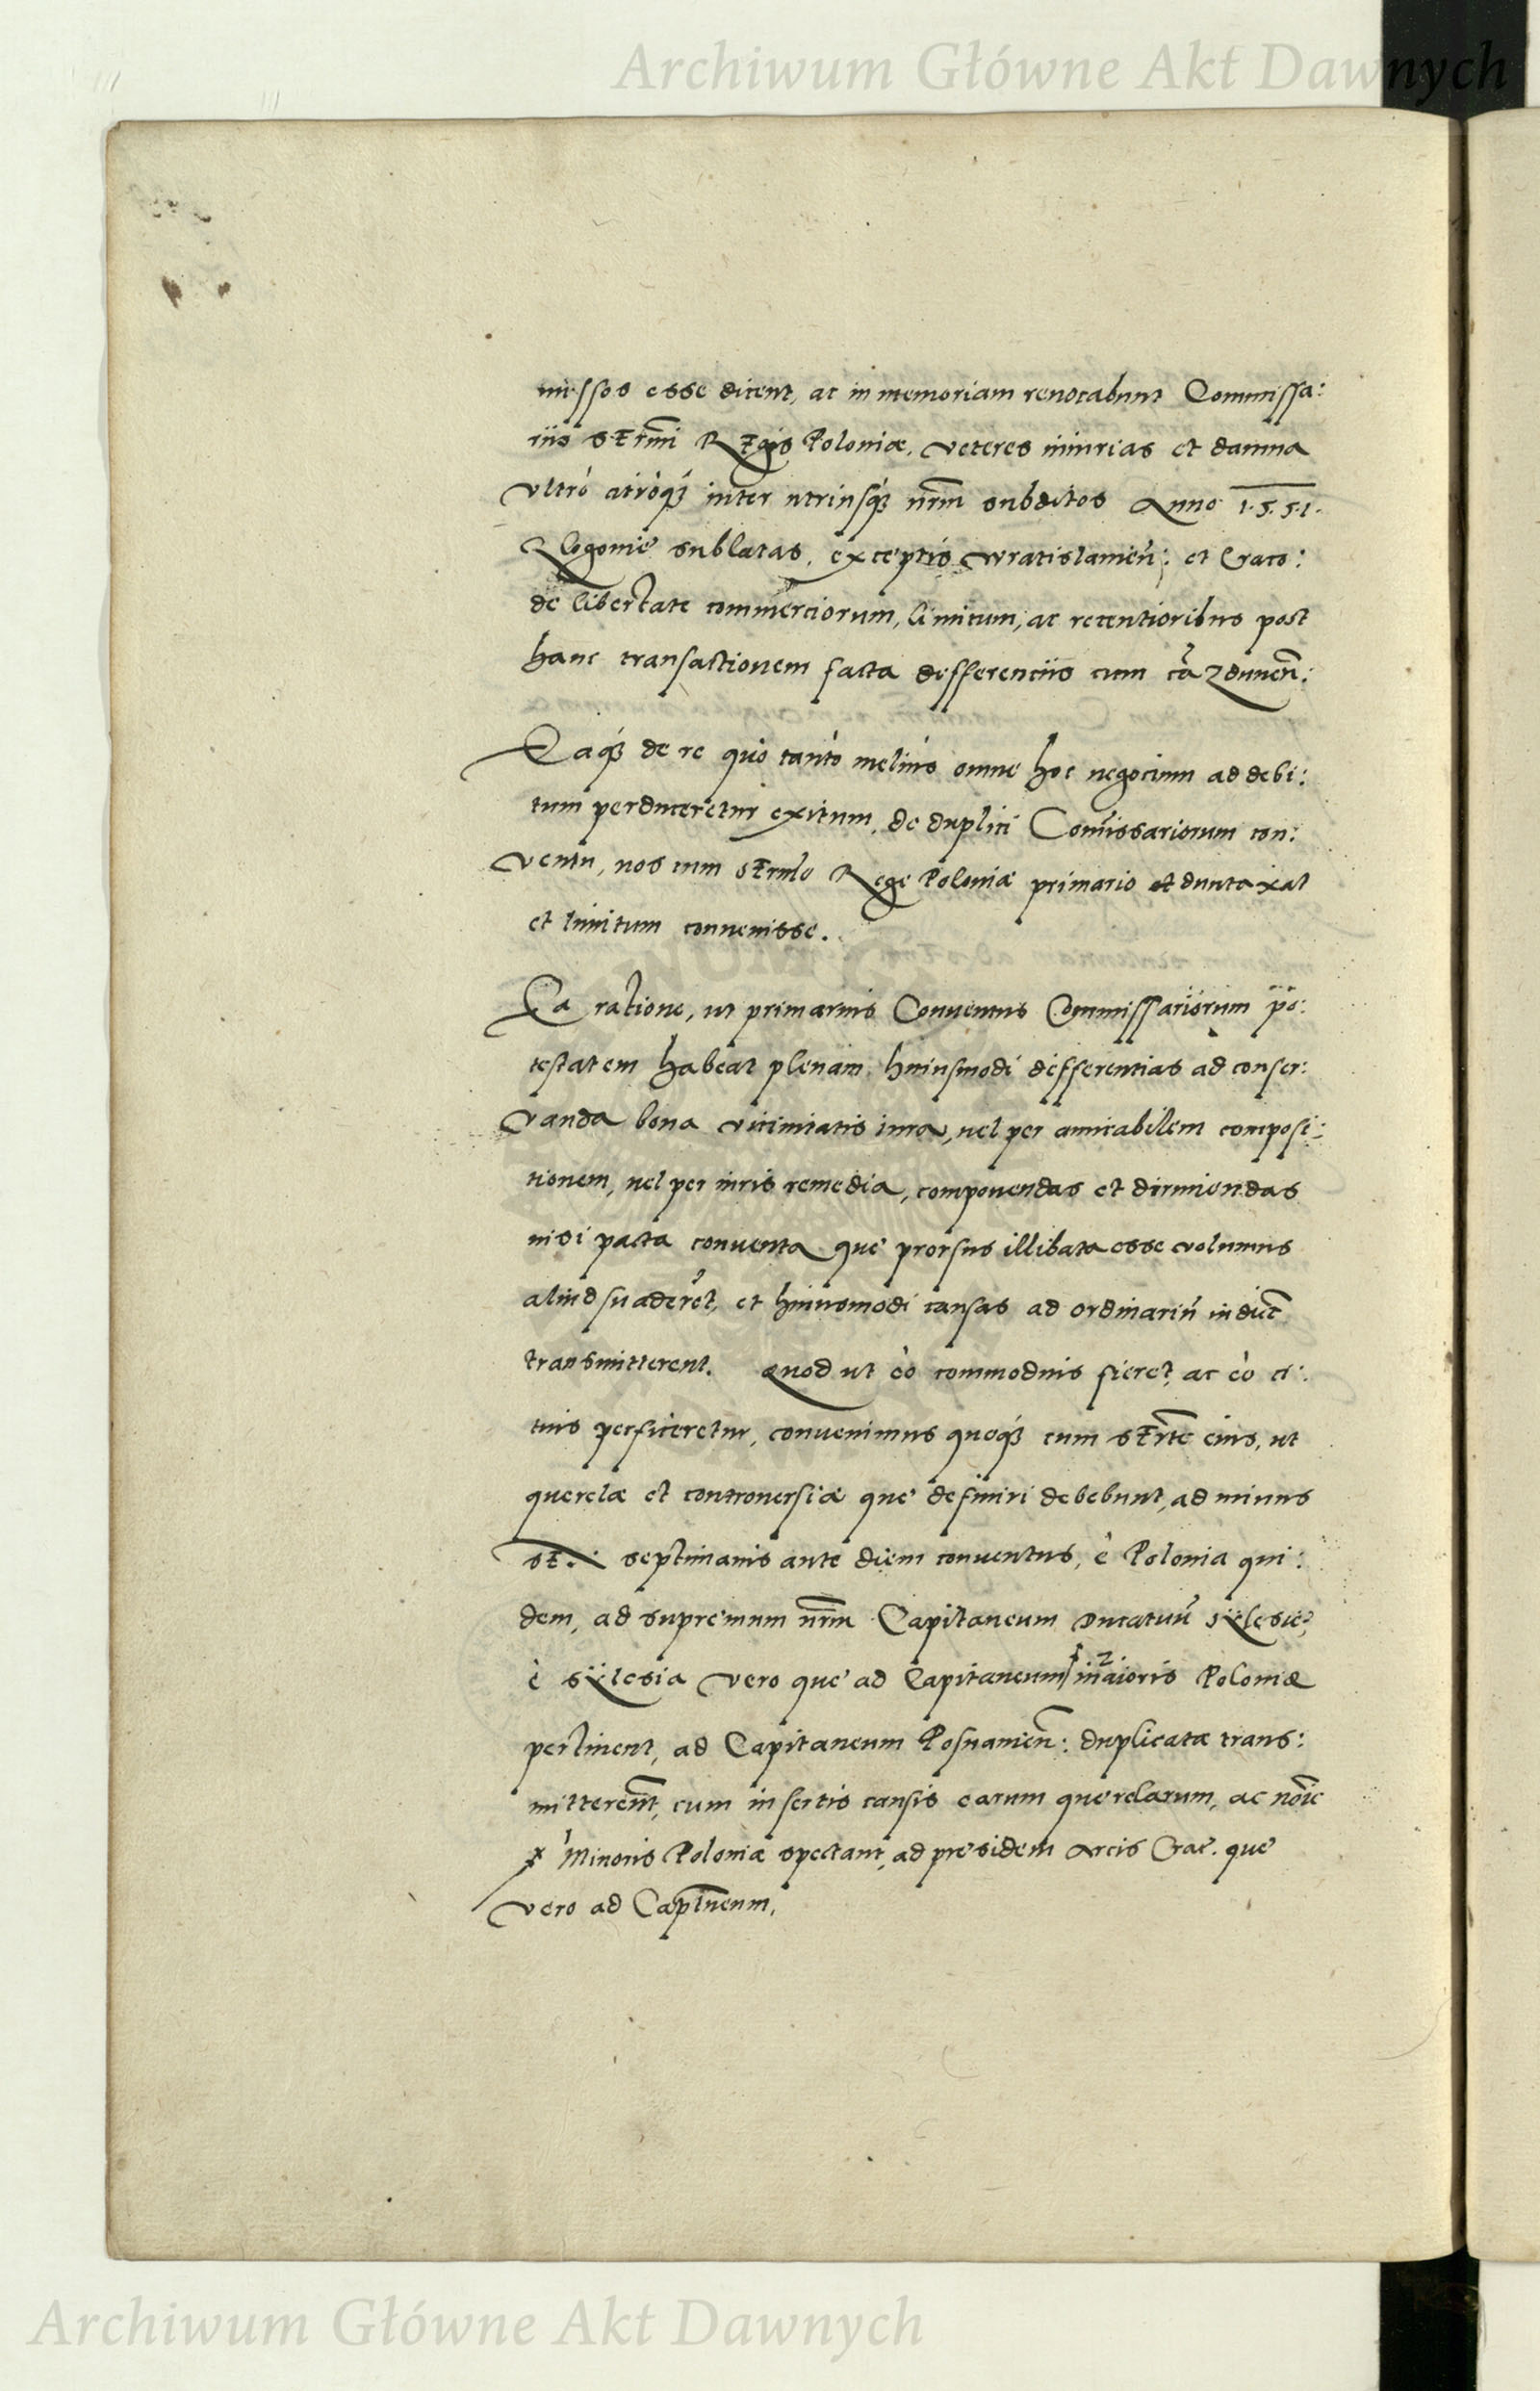 Archiwum Główne Akt Dawnych
missos esse dicent, ac in memoriam revocabunt Commissa:
riis sermi Regis Poloniæ, veteres iniurias et damna
vltrò citròq3 inter utriusq3 nrm subditos Anno 1.5.5.1.
Rogoniè sublatas, exceptis wratislauien: et Craco:
de libertate commerciorum, limitum, ac recentioribus post
hanc transactionem facta differenciis cum Zdunen:
Eaq3 de re quò tantò meliùs omne hoc negocium ad debi:
tum perduceretur exitum, de duplici Comissariorum con:
ventu, nos cum sermo Rege Poloniæ primario duntaxat
et limitum convenisse.
Ea ratione, ut primarius Conventus Commissariorum po:
testatem habeat plenam, huiusmodi differentias ad conser:
vanda bona vicinitatis iura, vel per amicabilem composi:
tionem, vel per iuris remedia, componendas et dirimendas
nisi pacta conventa què prorsus illibata esse volumus
aliud suaderet, et huiusmodi causas ad ordinariu iudice
transmitterent. Quod ut eò commodius fieret, ac eò ci:
tius perficeretur, convenimus quoq3 cum serte eius, ut
querelæ et controuersiæ què definiri debebunt, ad minus
sex: septimanis ante diem conventus, è Polonia qui:
dem, ad supremum nrm Capitaneum Ducatuu sÿlesiè,
è sÿlesia vero què ad Capitaneum maioris Poloniæ
pertinent, ad Capitaneum Posnanien: duplicatæ trans:
mitterent, cum insertis causis earum querelarum, ac noie
Minoris Poloniæ spectant, ad presidem Arcis Crac. què
vero ad Captneum,
Archiwum Główne Akt Dawnych